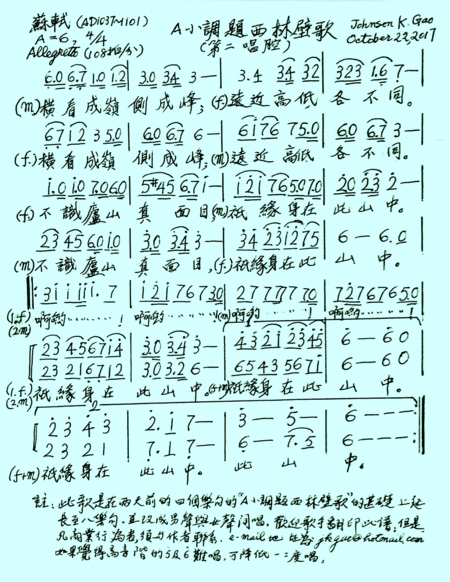 蘇軾 (AD1037-1101)
A小調題西林壁歌
Johnson K. Gao
A=6, 4/4
(第二唱腔)
October 23, 2017
Allegretto (108拍/分)
6.0 6.7 1.0 1.2 | 3.0 34 3— | 3.4 34 32 | 323 1.6 7—
(m)橫看成嶺 側成峰; (f)遠近高低 各不同。
67 12 35.0 | 6.0 6.7 6— | 6176 75.0 | 6.0 6.7 3—
(f.)橫看成嶺 側成峰; (m)遠近高低 各不同。
1.0 1.0 7.0 6.0 | 5#45 6.7 1— | 121 765.0 7.0 | 2.0 23 2—
(f.)不識廬山 真面目 (m)衹緣身在 此山中。
23 45 6.0 1.0 | 3.0 3.4 3— | 34 231275 | 6—6.0
(m)不識廬山 真面目, (f.)衹緣身在此 山中。
31 11 11.7 | 121 76730 | 27 77 77 70 | 727676 50
(1.f.) 啊哟……! 啊哟……! (m)啊哟……! 啊哟……!
(2.m)
23 45 67 14 | 3.0 3.4 3— | 43 21 23 45 | 6—60
23 21 67 12 | 3.0 3.2 6— | 65 43 56 71 | 6—60
(1.f.)衹緣身在 此山中。衹緣身在此 山中。
(2.m)
2 3 4 3 | 2.1 7— | 3—5— | 6———
2 3 2 1 | 7.1 7— | 6—7.5 | 6———
(f+m)衹緣身在 此山中。 此山 中。
註: 此歌是在兩天前的四個樂句的"A小調題西林壁歌"的基礎上延
長至八樂句, 並改成男聲與女聲问唱。歡迎歌手翻印此谱; 但是,
凡商業行為者, 須与作者聯系。e-mail地址為: gkguo@hotmail.com
如果覺得高音階的5及6難唱, 可降低一二度唱。